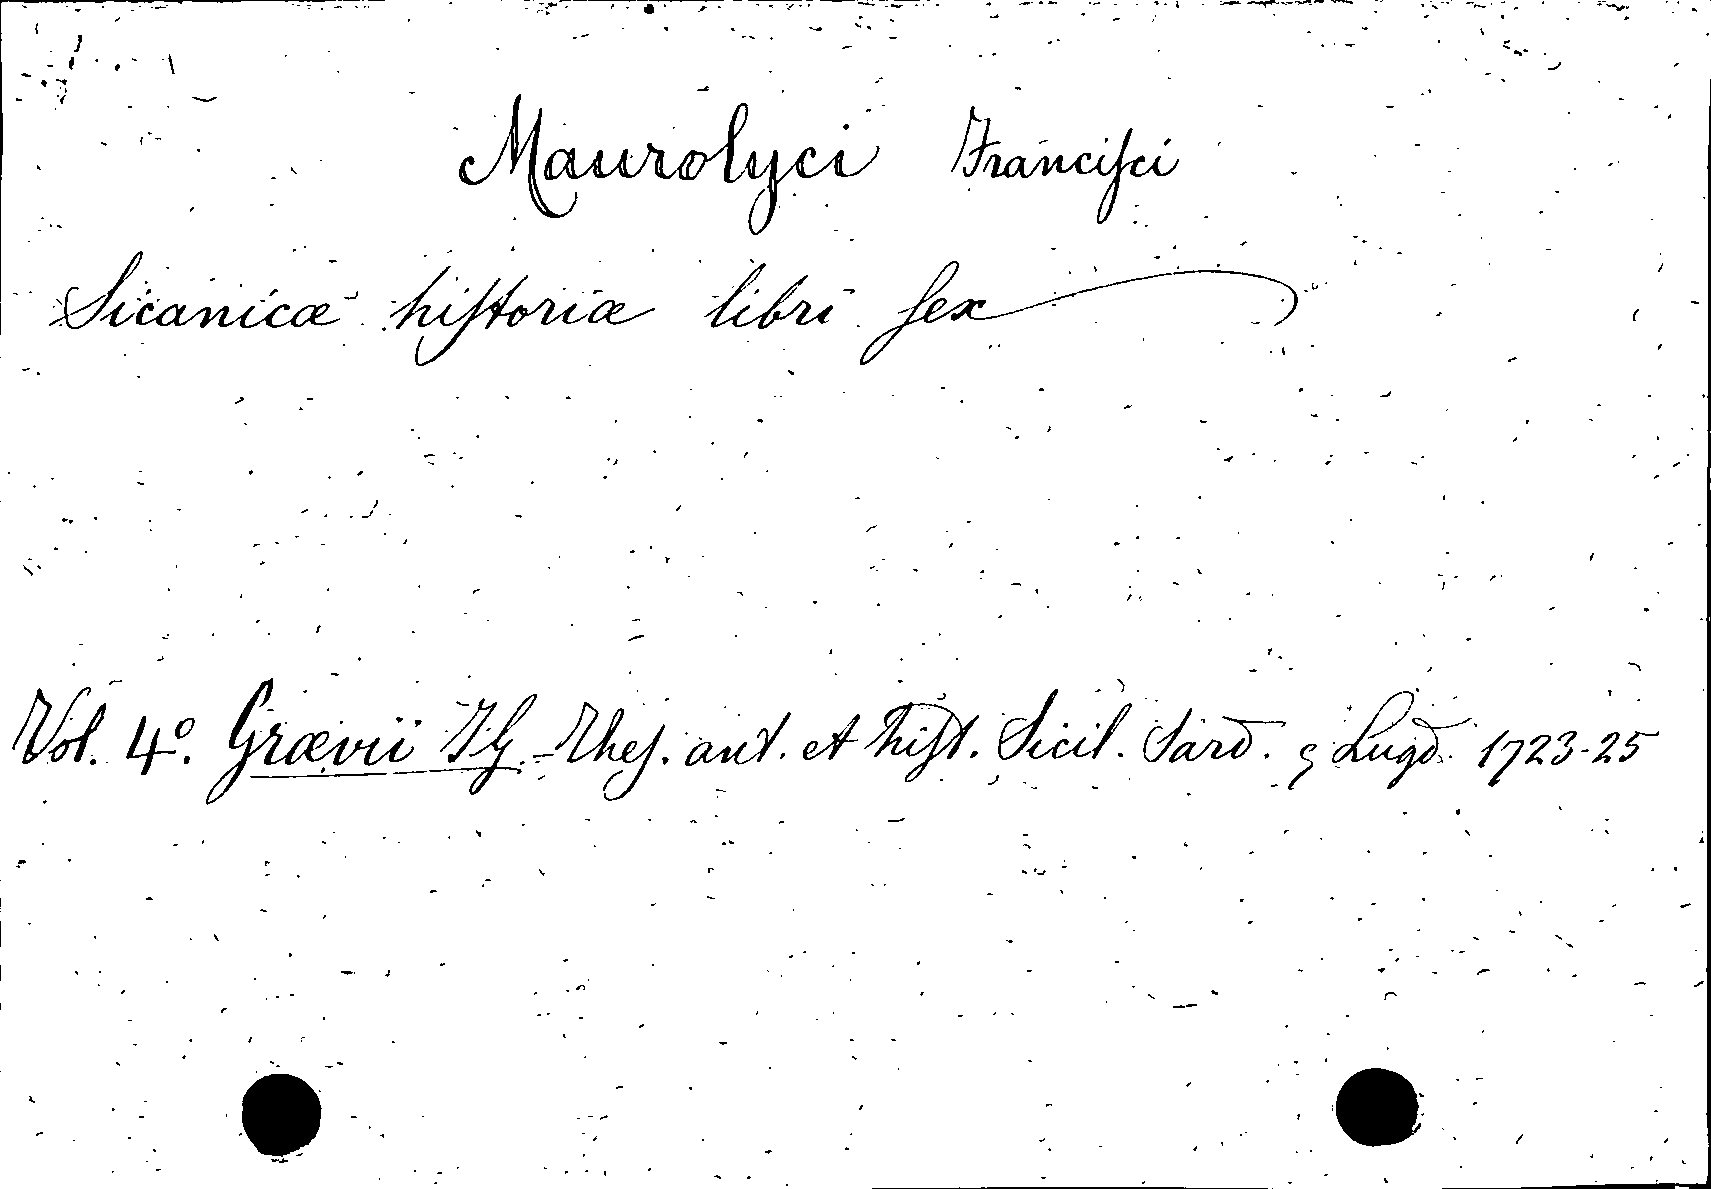 Maurolyci Franciſci
Sicanicæ hiſtoriæ libri ſex
Vol. 4º. Grævii I G. - Theſ. ant. et hiſt. Sicil. Sard. Lugd. 1723-25